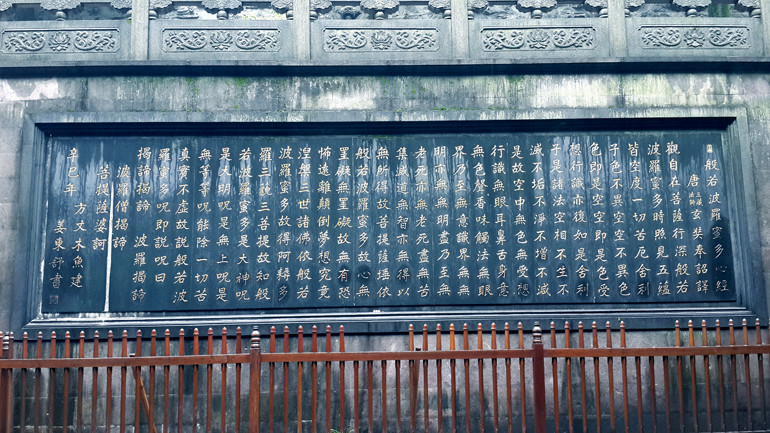 般若波羅蜜多心經
唐三藏法師玄奘奉詔譯
觀自在菩薩行深般若
波羅蜜多時照見五蘊
皆空度一切苦厄舍利
子色不異空空不異色
色即是空空即是色受
想行識亦復如是舍利
子是諸法空相不生不
滅不垢不淨不增不減
是故空中無色無受想
行識無眼耳鼻舌身意
無色聲香味觸法無眼
界乃至無意識界無無
明亦無無明盡乃至無
老死亦無老死盡無苦
集滅道無智亦無得以
無所得故菩提薩埵依
般若波羅蜜多故心無
罣礙無罣礙故無有恐
怖遠離顛倒夢想究竟
涅槃三世諸佛依般若
波羅蜜多故得阿耨多
羅三藐三菩提故知般
若波羅蜜多是大神呪
是大明呪是無上呪是
無等等呪能除一切苦
真實不虛故說般若波
羅蜜多呪即說呪曰
揭諦揭諦 波羅揭諦
波羅僧揭諦
菩提薩婆訶
辛巳年 方丈木魚建
姜東舒書